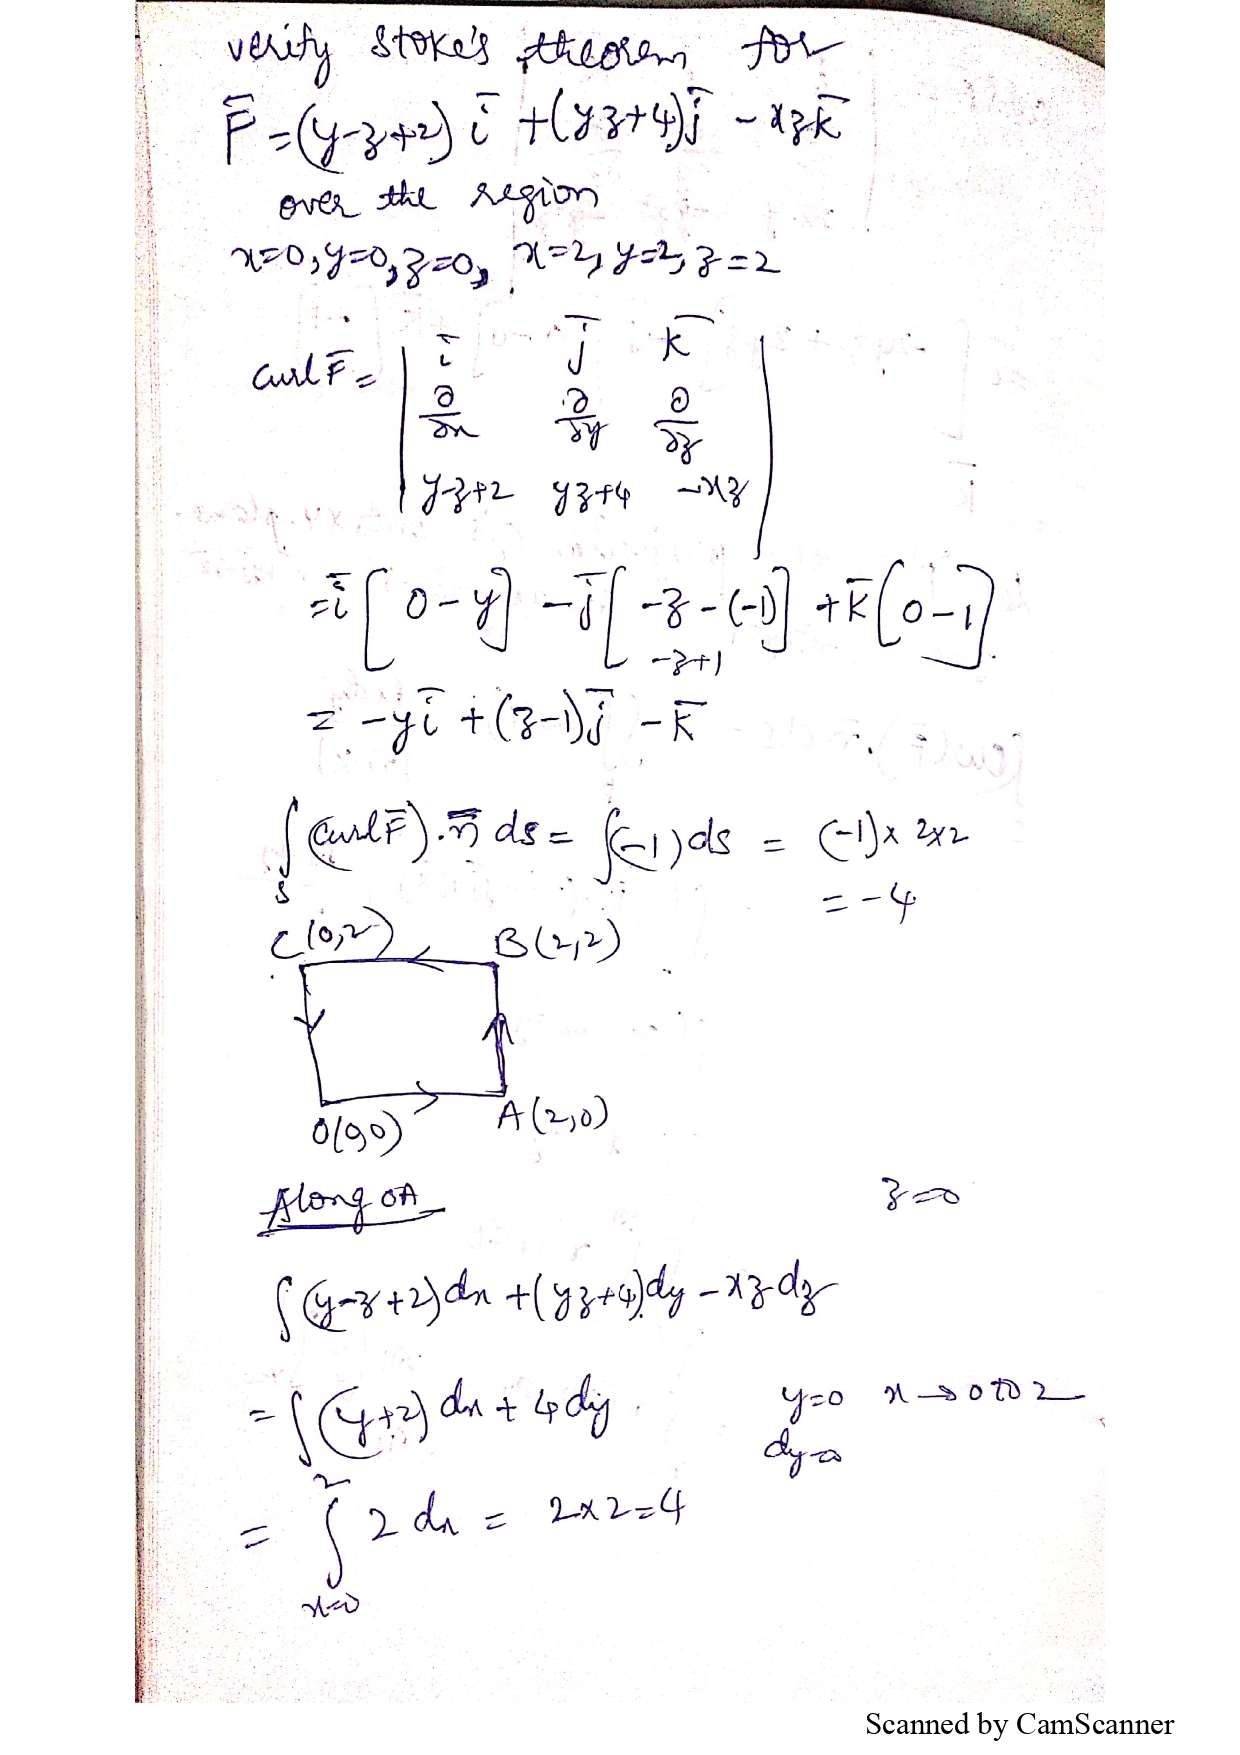 verify stoke's theorem for
F̄ = (y-z+2) ī + (yz+4)j̄ - xz k̄
over the region
x=0, y=0, z=0, x=2, y=2, z=2
curl F̄ = | ī j̄ k̄
∂/∂x ∂/∂y ∂/∂z
y-z+2 yz+4 -xz |
= ī [0-y] - j̄ [-z-(-1)] + k̄ [0-1]
-z+1
= -y ī + (z-1) j̄ - k̄
∫ (curl F̄). n̄ ds = ∫(-1) ds = (-1) x 2x2
S
= -4
C(0,2) B(2,2)
O(0,0) A(2,0)
Along OA z=0
∫ (y-z+2) dx + (yz+4) dy - xz dz
= ∫ (y+2) dx + 4 dy y=0 x → 0 to 2
dy=0
= ∫ 2 dx = 2x2 = 4
2
x=0
Scanned by CamScanner